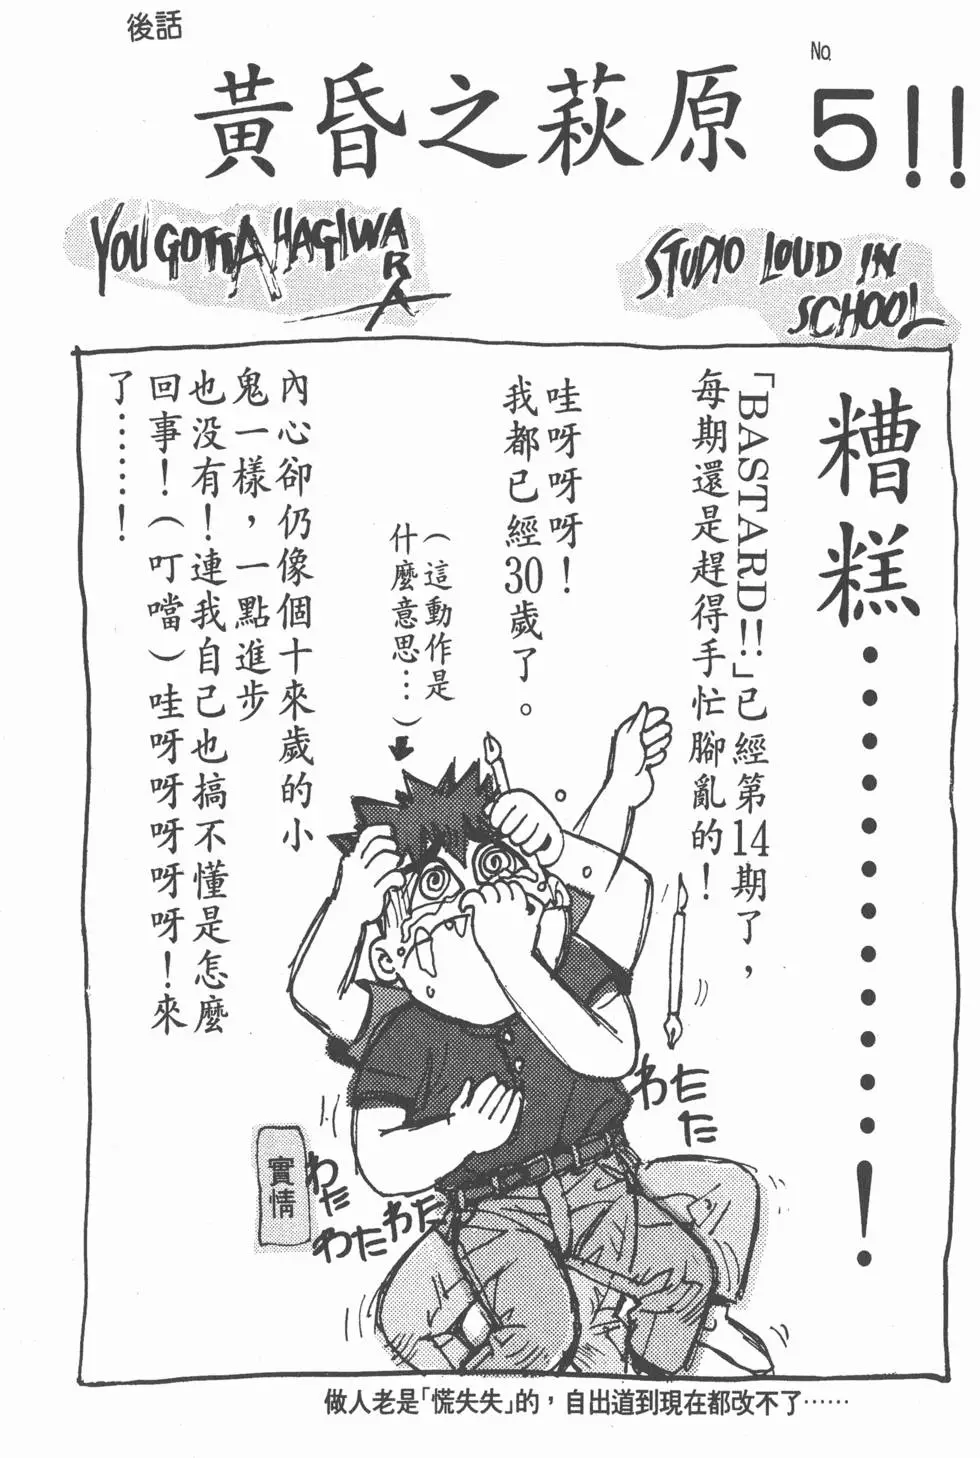 後話
黃昏之萩原
No.
5!!
YOU GOTTA HAGIWARA
STUDIO LOUD IN
SCHOOL
糟糕…………!
「BASTARD!!」已經第14期了,
每期還是趕得手忙腳亂的!
哇呀呀呀!
我都已經30歲了。
(這動作是
什麼意思…)
內心卻仍像個十來歲的小
鬼一樣,一點進步
也没有!連我自己也搞不懂是怎麼
回事!(叮噹)哇呀呀呀呀呀!來
了……!
わたた
た
わた
た
わたわた
實情
做人老是「慌失失」的,自出道到現在都改不了……